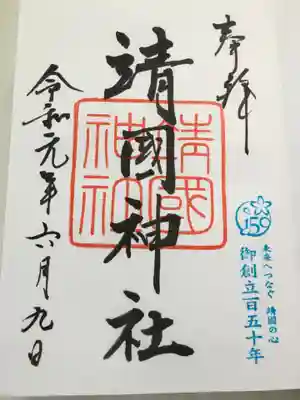 奉拝
靖國神社
靖國
神社
令和元年六月九日
150
未来へつなぐ 靖國の心
御創立百五十年